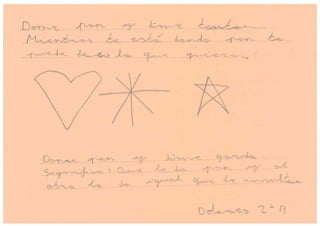 Dame pan y dime tonto.
Mientras te está dando pan te
puede decir lo que quiera.
Dame pan y dime gorda
Significa: Que le da pan y al
otro le da igual que le insulte
Dolores 2º B